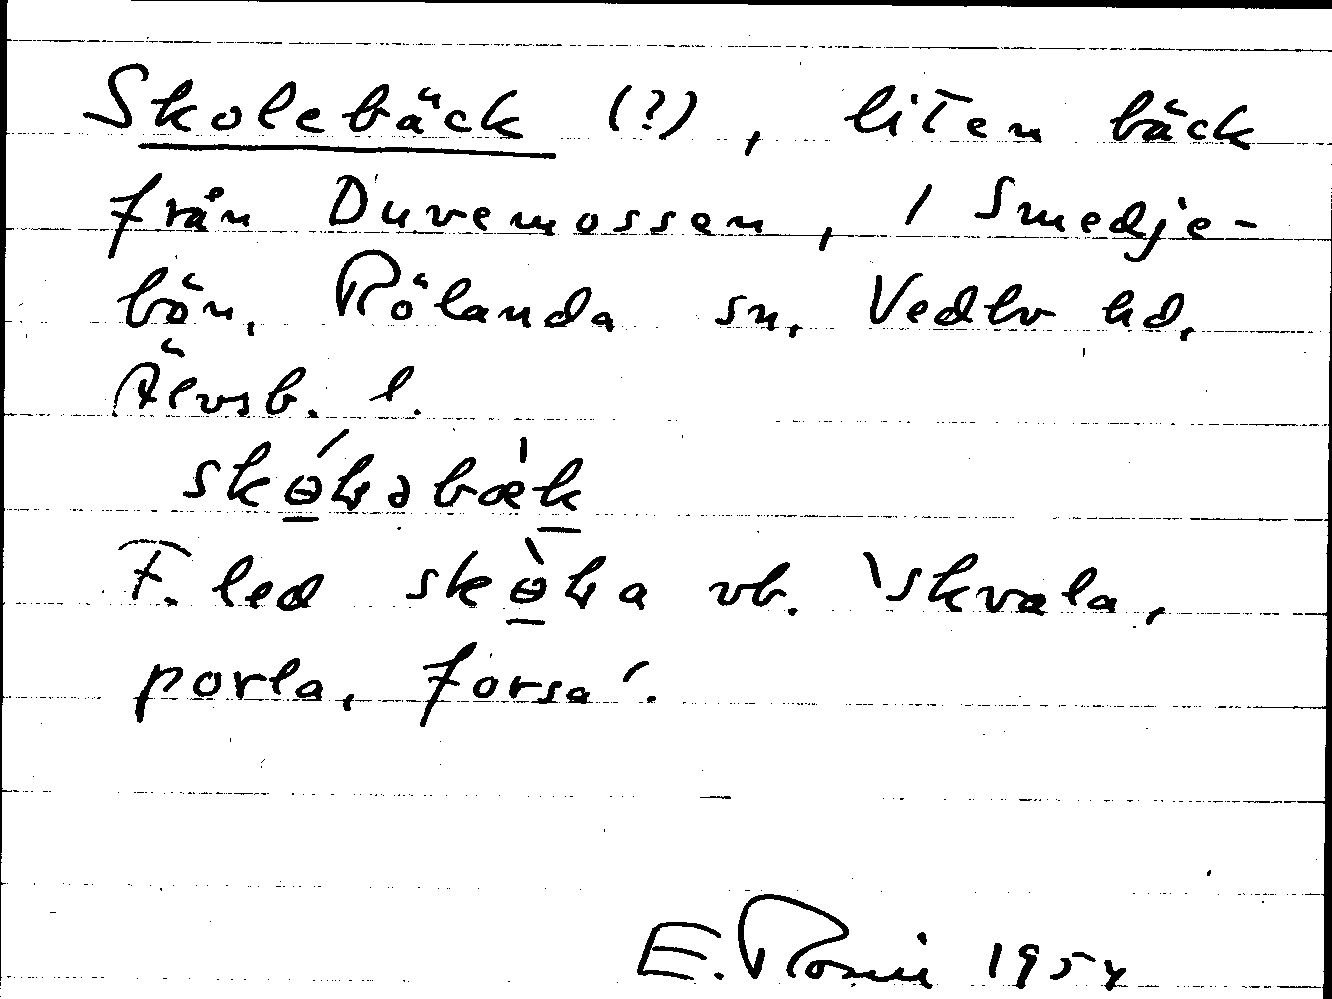 Skolebäck (?), liten bäck
från Duvemossen, i Smedje-
bön, Rölanda sn, Vedbo hd,
Älvsb. l.
skɵ́ɽəbæ̀k
F. led skɵ̀ɽa vb. 'skvala,
porla, forsa'.
E. 1954